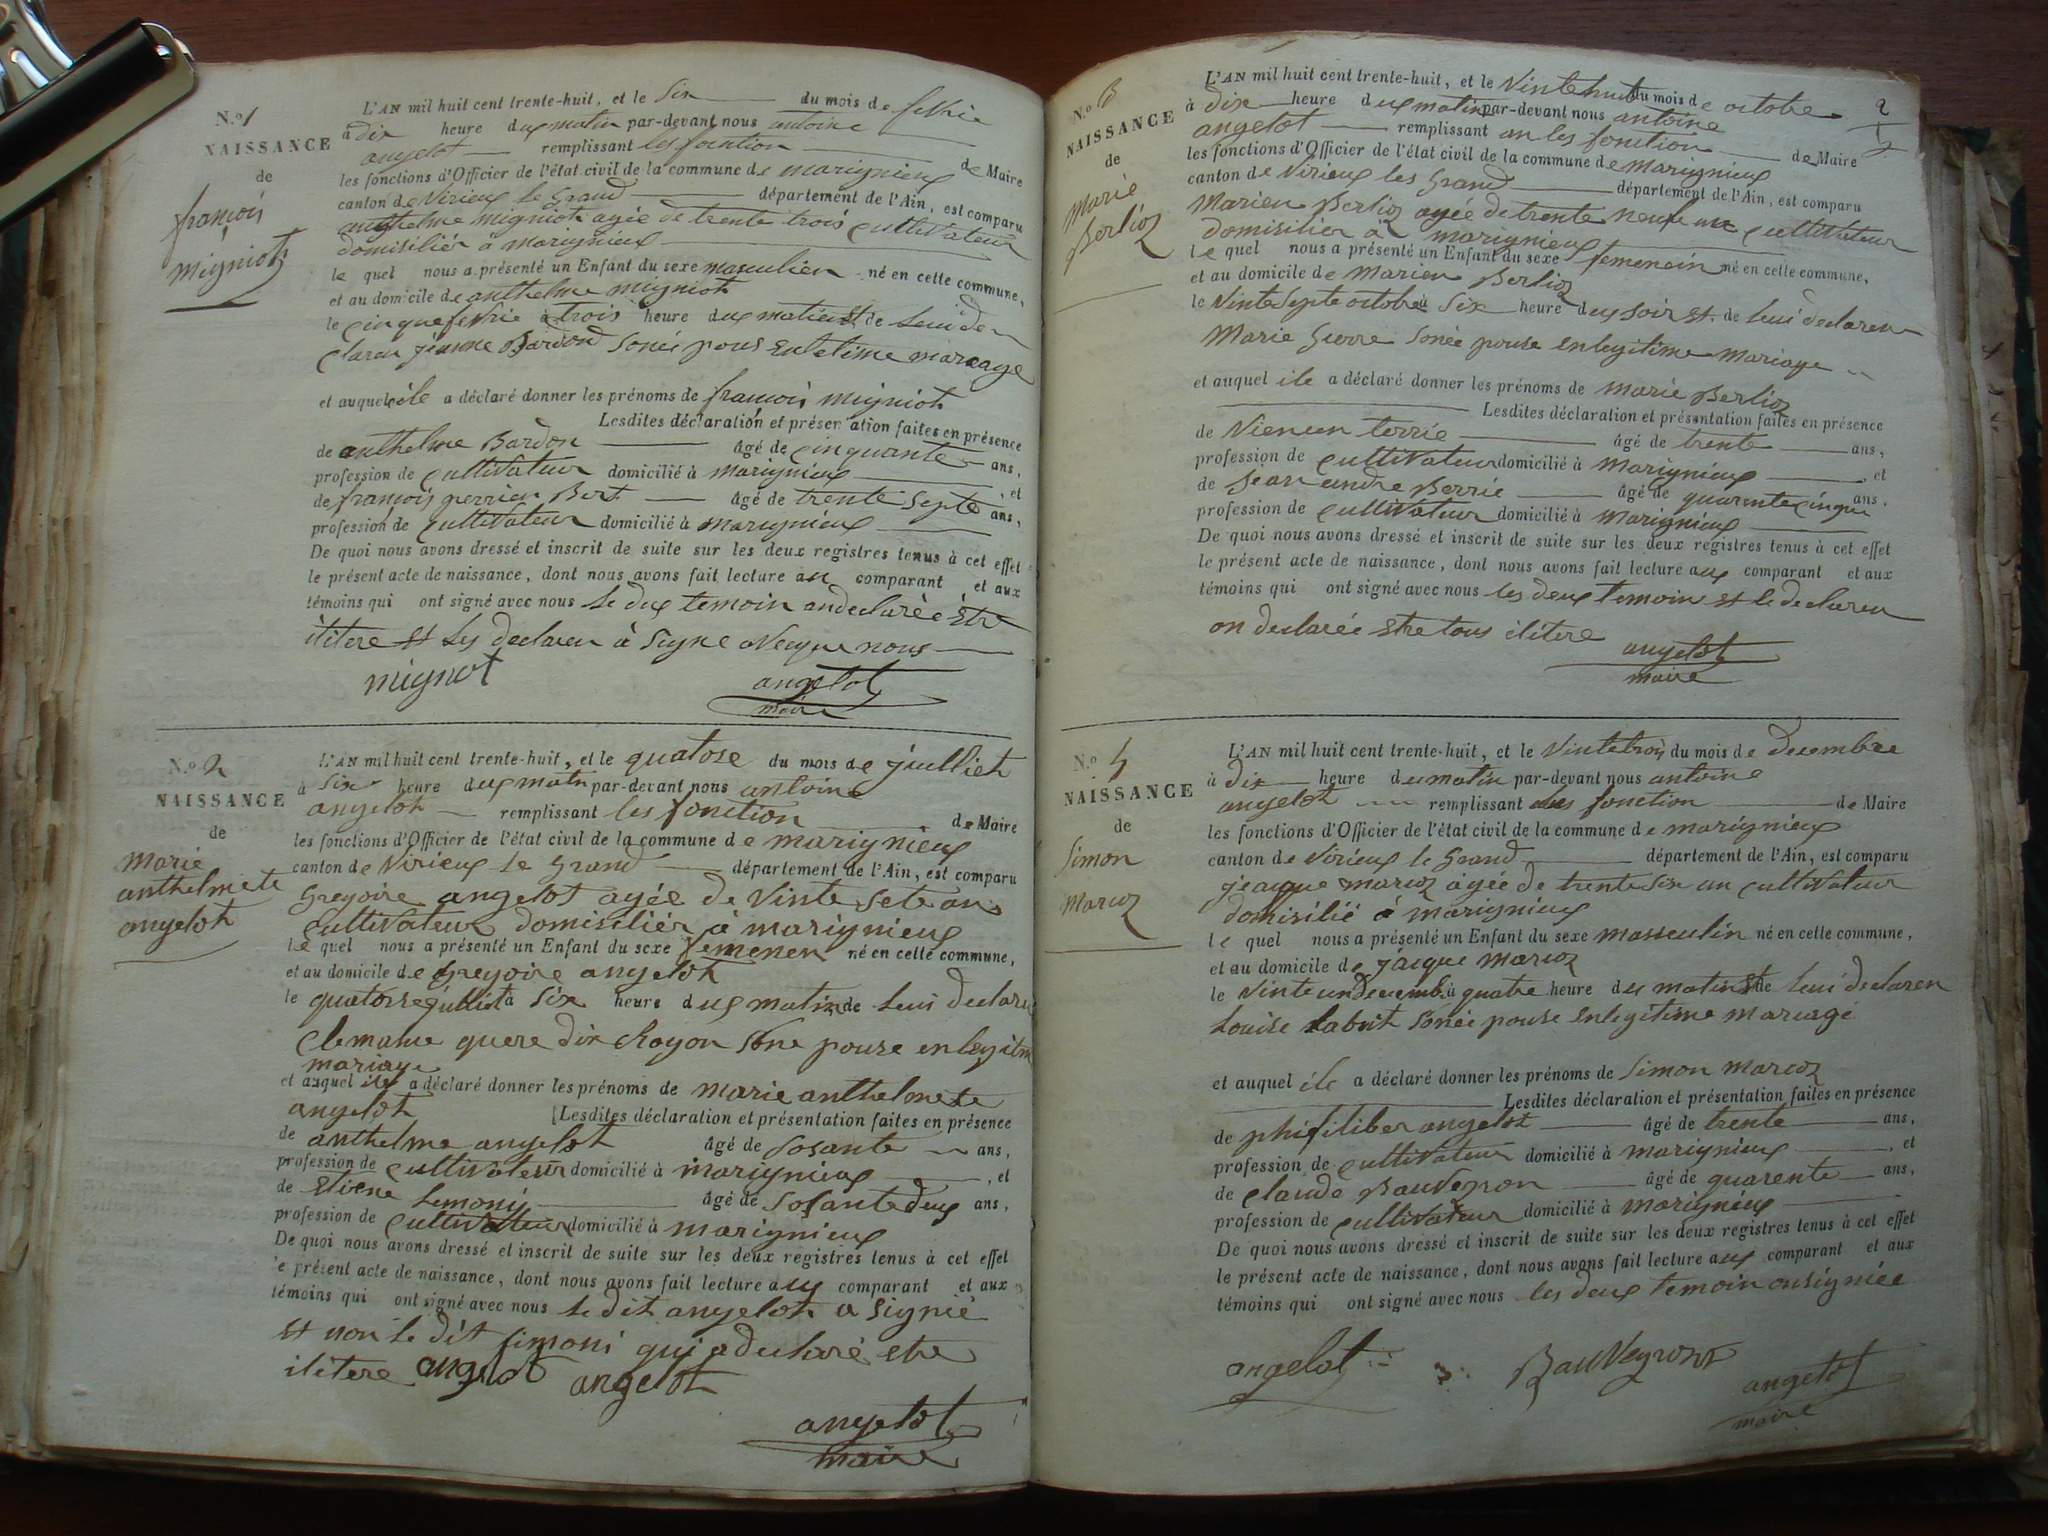 N.º 1
NAISSANCE
de
françois
migniot
L'AN mil huit cent trente-huit, et le Six du mois de fevrie
à dix heure dux matin par-devant nous antoine
angelot remplissant les fonction de Maire
les fonctions d'Officier de l'état civil de la commune de marignieux
canton de Virieux le Grand département de l'Ain, est comparu
anthelme migniot agée de trente trois cultivateur
domisiliér a marignieux
le quel nous a présenté un Enfant du sexe masculien né en cette commune,
et au domicile de anthelme migniot
le cinque fevrie à trois heure dux matin et de Lui de
claren jeanne Bardond sonée pous enletime mareage
et auquel ile a déclaré donner les prénoms de françois migniot
Lesdites déclaration et présentation faites en présence
de anthelme Bardon âgé de cinquante ans,
profession de cultivateur domicilié à marignieux, et
de françois perrier Bert âgé de trente septe ans,
profession de cultivateur domicilié à marignieux
De quoi nous avons dressé et inscrit de suite sur les deux registres tenus à cet effet
le présent acte de naissance, dont nous avons fait lecture au comparant et aux
témoins qui ont signé avec nous le dux temoin andeclarèe être
ilitere et Les declaren à signe avecque nous
mignot
angelot
maire
N.º 2
NAISSANCE
de
marie
anthelmete
angelot
L'AN mil huit cent trente-huit, et le quatose du mois de juilliet
à Six heure dux matin par-devant nous antoine
angelot remplissant les fonction de Maire
les fonctions d'Officier de l'état civil de la commune de marignieux
canton de Virieux le Grand département de l'Ain, est comparu
Gregoire angelot agée de Vinte sete ans
cultivateur domisiliér à marignieux
le quel nous a présenté un Enfant du sexe femenen né en cette commune,
et au domicile de Gregoire angelot
le quatorse juilliet à Six heure dux matin de Lui declaren
Clemanse quere dix Chayon sone pouse en legitime
mariage
et auquel ile a déclaré donner les prénoms de marie anthelmete
angelot Lesdites déclaration et présentation faites en présence
de anthelme angelot âgé de sosante ans,
profession de cultivateur domicilié à marignieux, et
de Etiene Lemoni âgé de sosante deux ans,
profession de cultivateur domicilié à marignieux
De quoi nous avons dressé et inscrit de suite sur les deux registres tenus à cet effet
le présent acte de naissance, dont nous avons fait lecture aux comparant et aux
témoins qui ont signé avec nous le dit angelot a signié
et non le dit simoni qui a declaré etre
ilitere angelot angelot
angelot
maire
2
N.º 3
NAISSANCE
de
Marie
Berlioz
L'AN mil huit cent trente-huit, et le Vintehuit du mois de octobe
à dix heure dux matin par-devant nous antoine
angelot remplissant an les fonction de Maire
les fonctions d'Officier de l'état civil de la commune de marignieux
canton de Virieux les Grand département de l'Ain, est comparu
Marien Berlioz agée de trente neuf an cultivateur
domisilier a marignieux
le quel nous a présenté un Enfant du sexe femenein né en cette commune,
et au domicile de marien Berlioz
le Vinte septe octobre à Six heure dux soir et de Lui declaren
Marie Gierre sonée pouse enlegitime mariage
et auquel ile a déclaré donner les prénoms de marie Berlioz
Lesdites déclaration et présentation faites en présence
de Viencen terrie âgé de trente ans,
profession de cultivateur domicilié à marignieux, et
de Jean andre Berrie âgé de quarente cinque ans,
profession de cultivateur domicilié à Marignieux
De quoi nous avons dressé et inscrit de suite sur les deux registres tenus à cet effet
le présent acte de naissance, dont nous avons fait lecture aux comparant et aux
témoins qui ont signé avec nous les deux temoin et le declaren
on declarée etre tous ilitere
angelot
maire
N.º 4
NAISSANCE
de
Simon
Marcoz
L'AN mil huit cent trente-huit, et le Vintetrois du mois de decembre
à dix heure du matin par-devant nous antoine
angelot remplissant les fonction de Maire
les fonctions d'Officier de l'état civil de la commune de marignieux
canton de Virieux le Grand département de l'Ain, est comparu
jeacque marcoz àgée de trente six an cultivateur
domisilié à marignieux
le quel nous a présenté un Enfant du sexe massculin né en cette commune,
et au domicile de jacque marcoz
le Vinte un decemb. à quatre heure du matin et de Lui declaren
Louise Labrit sonée pouse enlegitime mariagé
et auquel ile a déclaré donner les prénoms de Simon marcoz
Lesdites déclaration et présentation faites en présence
de phifiliber angelot âgé de trente ans,
profession de cultivateur domicilié à marignieux, et
de Claude Bauveyron âgé de quarente ans,
profession de cultivateur domicilié à marignieux
De quoi nous avons dressé et inscrit de suite sur les deux registres tenus à cet effet
le présent acte de naissance, dont nous avons fait lecture aux comparant et aux
témoins qui ont signé avec nous les deux temoin onsigniée
angelot Bauveyront angelot
maire